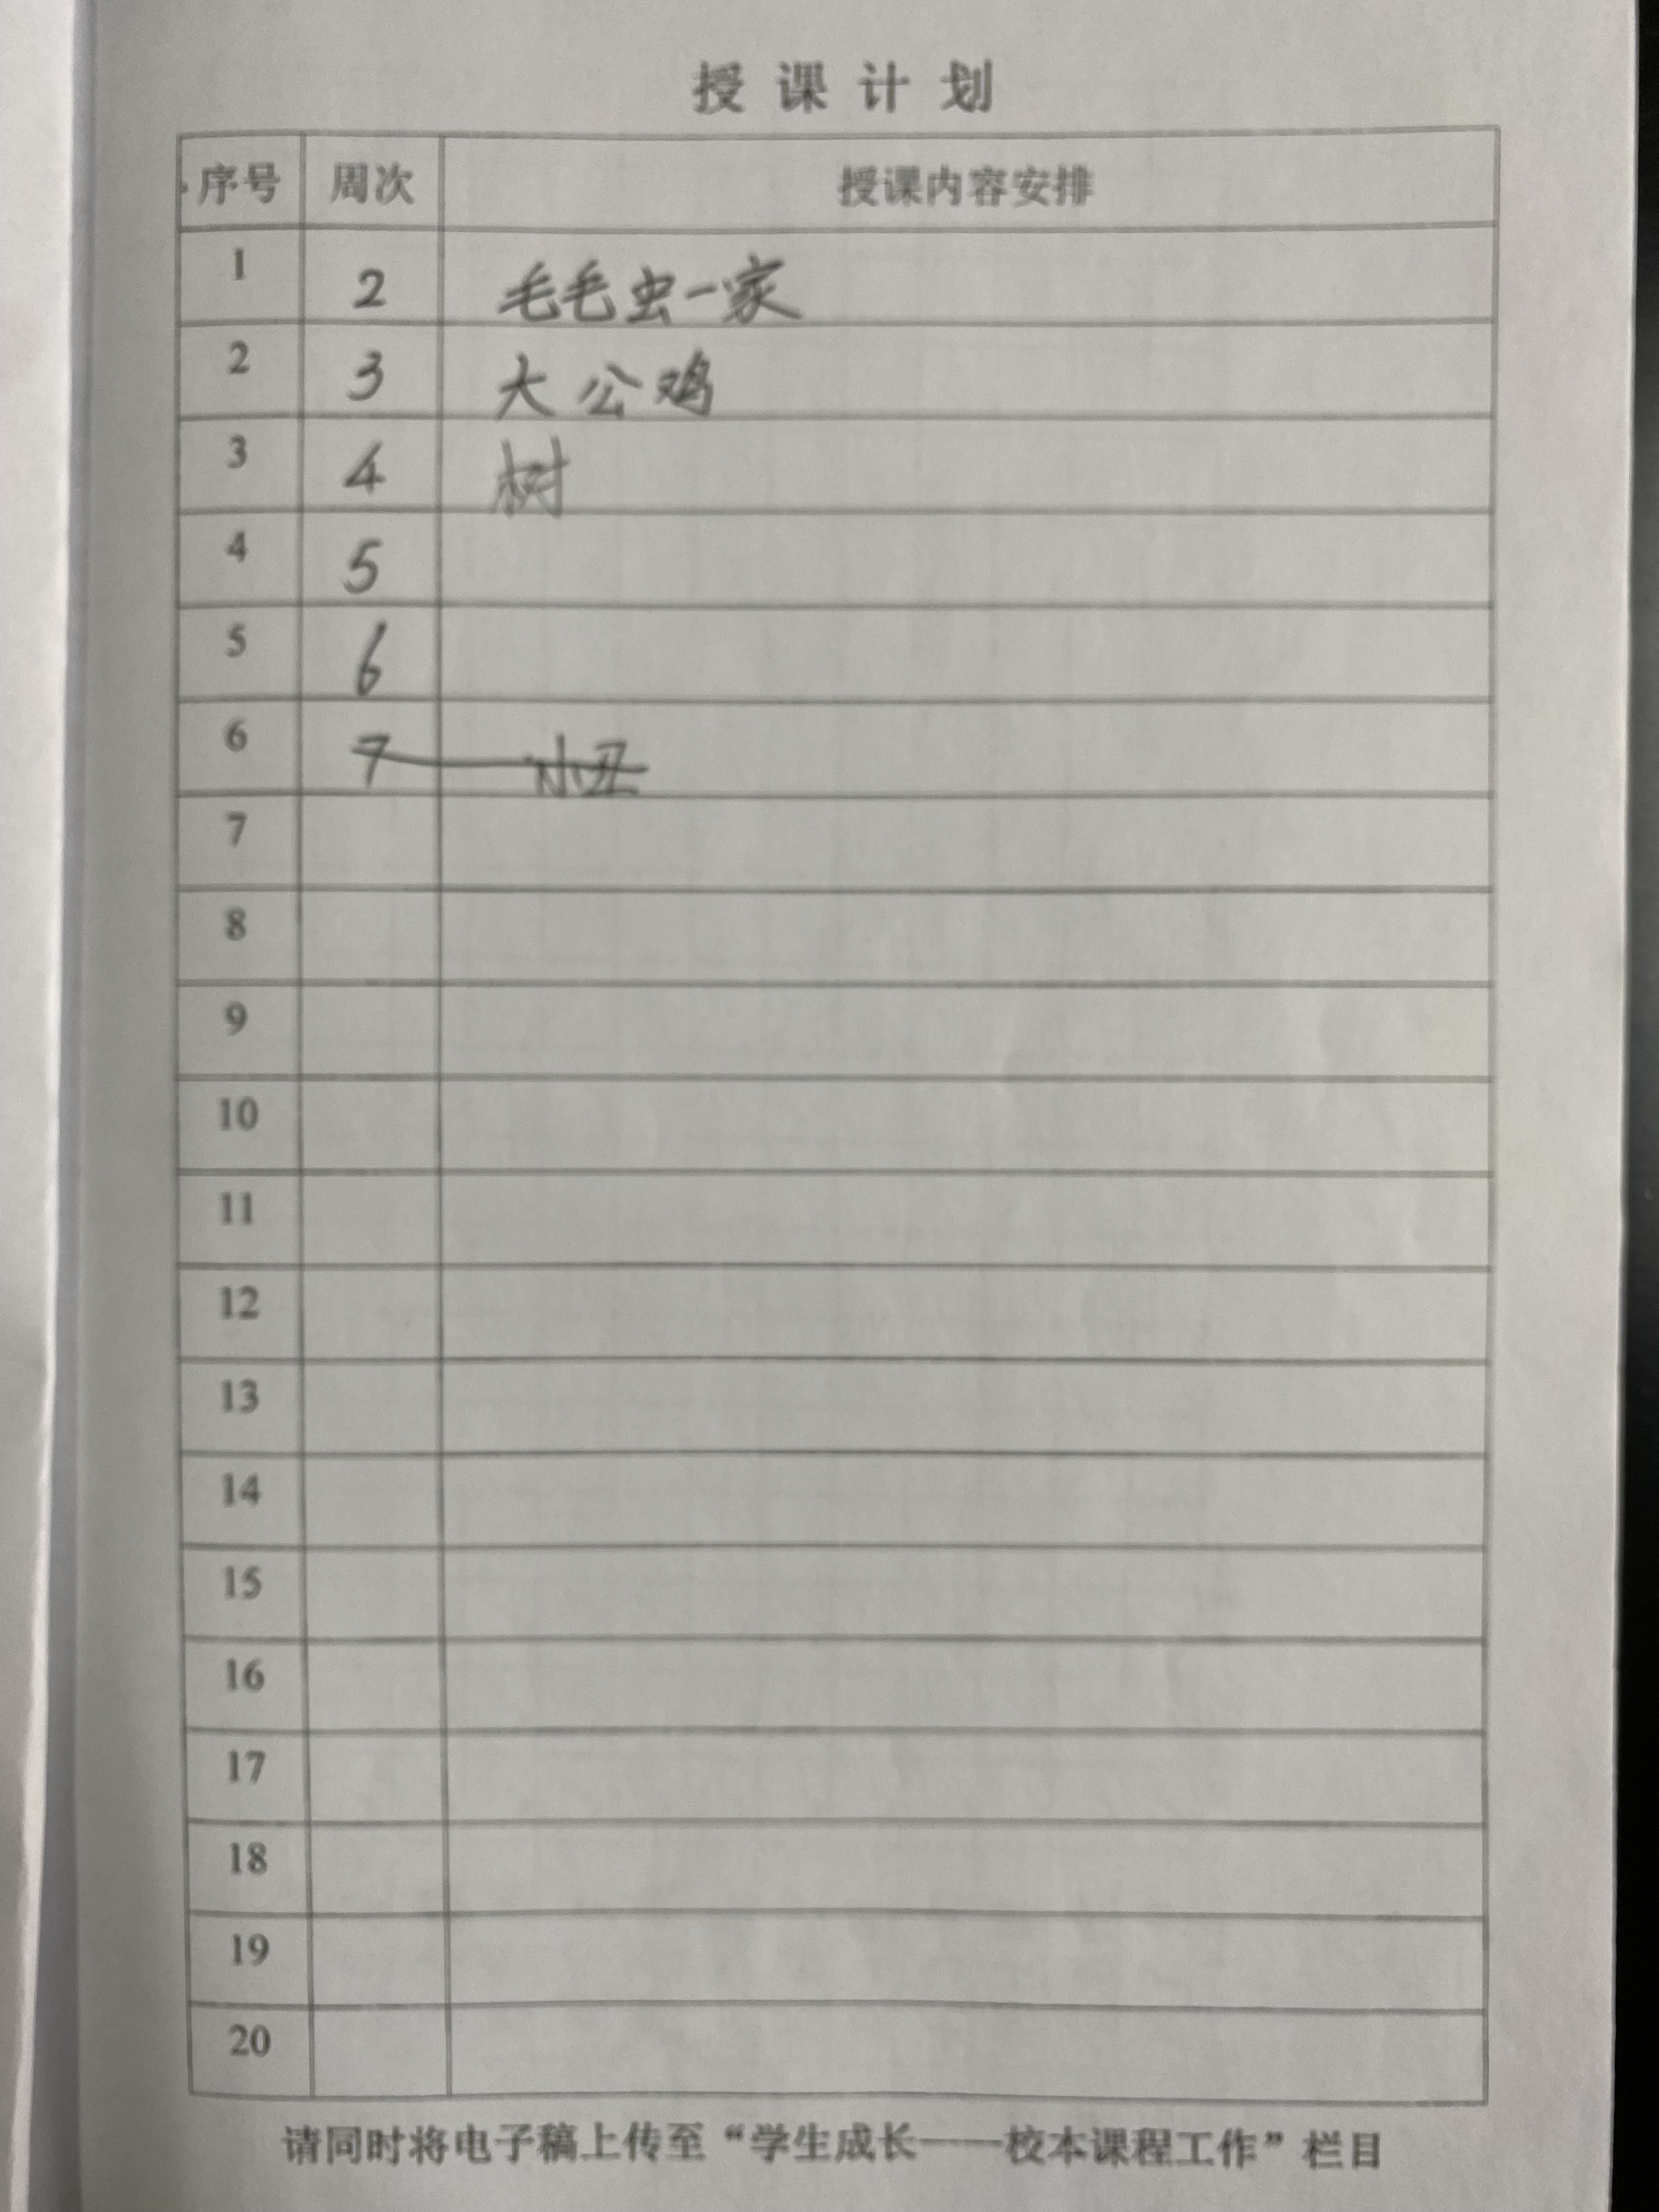 授课计划
序号 周次 授课内容安排
1 2 毛毛虫一家
2 3 大公鸡
3 4 树
4 5
5 6
6 7 小丑
7
8
9
10
11
12
13
14
15
16
17
18
19
20
请同时将电子稿上传至“学生成长——校本课程工作”栏目